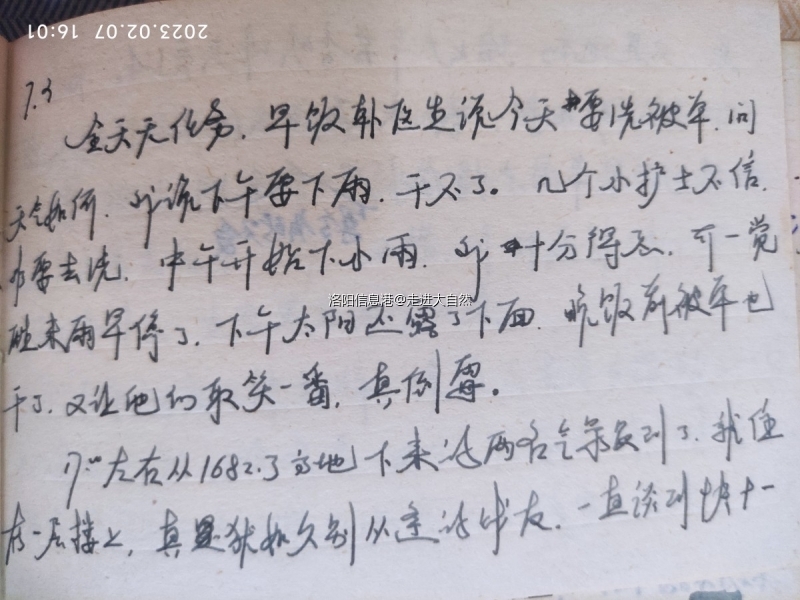 2023.02.07 16:01
7.3
全天无任务，早饭卦医生说今天要洗被单，问
天气如何，我说下午要下雨，干不了。几个小护士不信，
非要去洗，中午开始下小雨，我十分得意，可一觉
醒来雨早停了，下午太阳还露了下面，晚饭前被单也
干了，又让他们取笑一番，真倒霉。
左右从1682.3高地下来的两名气象员到了，我住
在一层楼上，真是犹如久别重逢的战友，一直谈到快十一
洛阳信息港@走进大自然